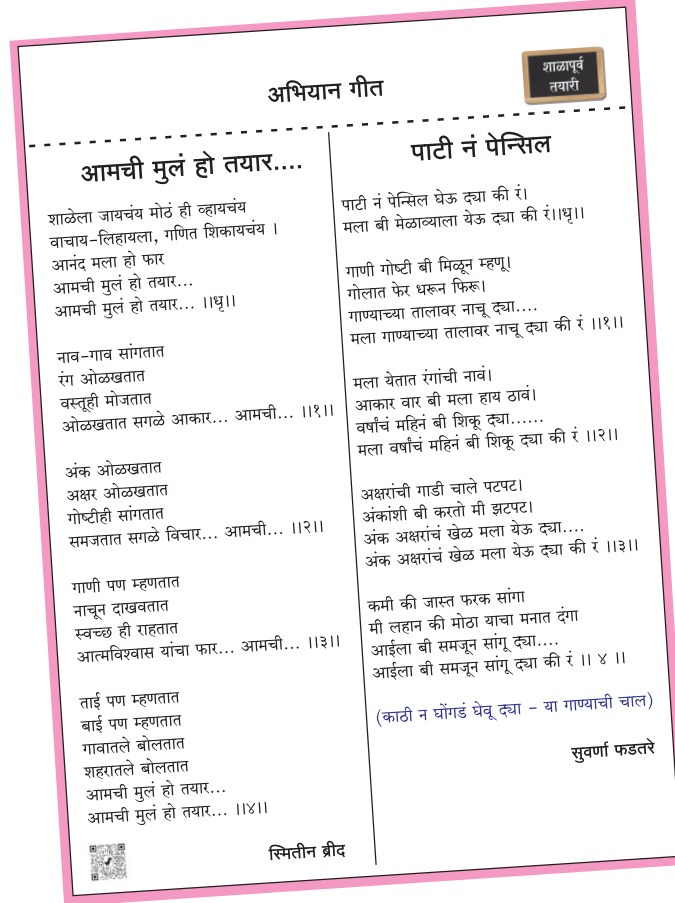 शाळापूर्व
तयारी
अभियान गीत
आमची मुलं हो तयार....
शाळेला जायचंय मोठं ही व्हायचंय
वाचाय-लिहायला, गणित शिकायचंय ।
आनंद मला हो फार
आमची मुलं हो तयार...
आमची मुलं हो तयार... ।।धृ।।
नाव-गाव सांगतात
रंग ओळखतात
वस्तूही मोजतात
ओळखतात सगळे आकार... आमची... ।।१।।
अंक ओळखतात
अक्षर ओळखतात
गोष्टीही सांगतात
समजतात सगळे विचार... आमची... ।।२।।
गाणी पण म्हणतात
नाचून दाखवतात
स्वच्छ ही राहतात
आत्मविश्वास यांचा फार... आमची... ।।३।।
ताई पण म्हणतात
बाई पण म्हणतात
गावातले बोलतात
शहरातले बोलतात
आमची मुलं हो तयार...
आमची मुलं हो तयार... ।।४।।
स्मितीन ब्रीद
पाटी नं पेन्सिल
पाटी नं पेन्सिल घेऊ द्या की रं।
मला बी मेळाव्याला येऊ द्या की रं।।धृ।।
गाणी गोष्टी बी मिळून म्हणू।
गोलात फेर धरून फिरू।
गाण्याच्या तालावर नाचू द्या....
मला गाण्याच्या तालावर नाचू द्या की रं ।।१।।
मला येतात रंगांची नावं।
आकार वार बी मला हाय ठावं।
वर्षांचं महिनं बी शिकू द्या......
मला वर्षांचं महिनं बी शिकू द्या की रं ।।२।।
अक्षरांची गाडी चाले पटपट।
अंकांशी बी करतो मी झटपट।
अंक अक्षरांचं खेळ मला येऊ द्या....
अंक अक्षरांचं खेळ मला येऊ द्या की रं ।।३।।
कमी की जास्त फरक सांगा
मी लहान की मोठा याचा मनात दंगा
आईला बी समजून सांगू द्या....
आईला बी समजून सांगू द्या की रं ।। ४ ।।
(काठी न घोंगडं घेवू द्या - या गाण्याची चाल)
सुवर्णा फडतरे